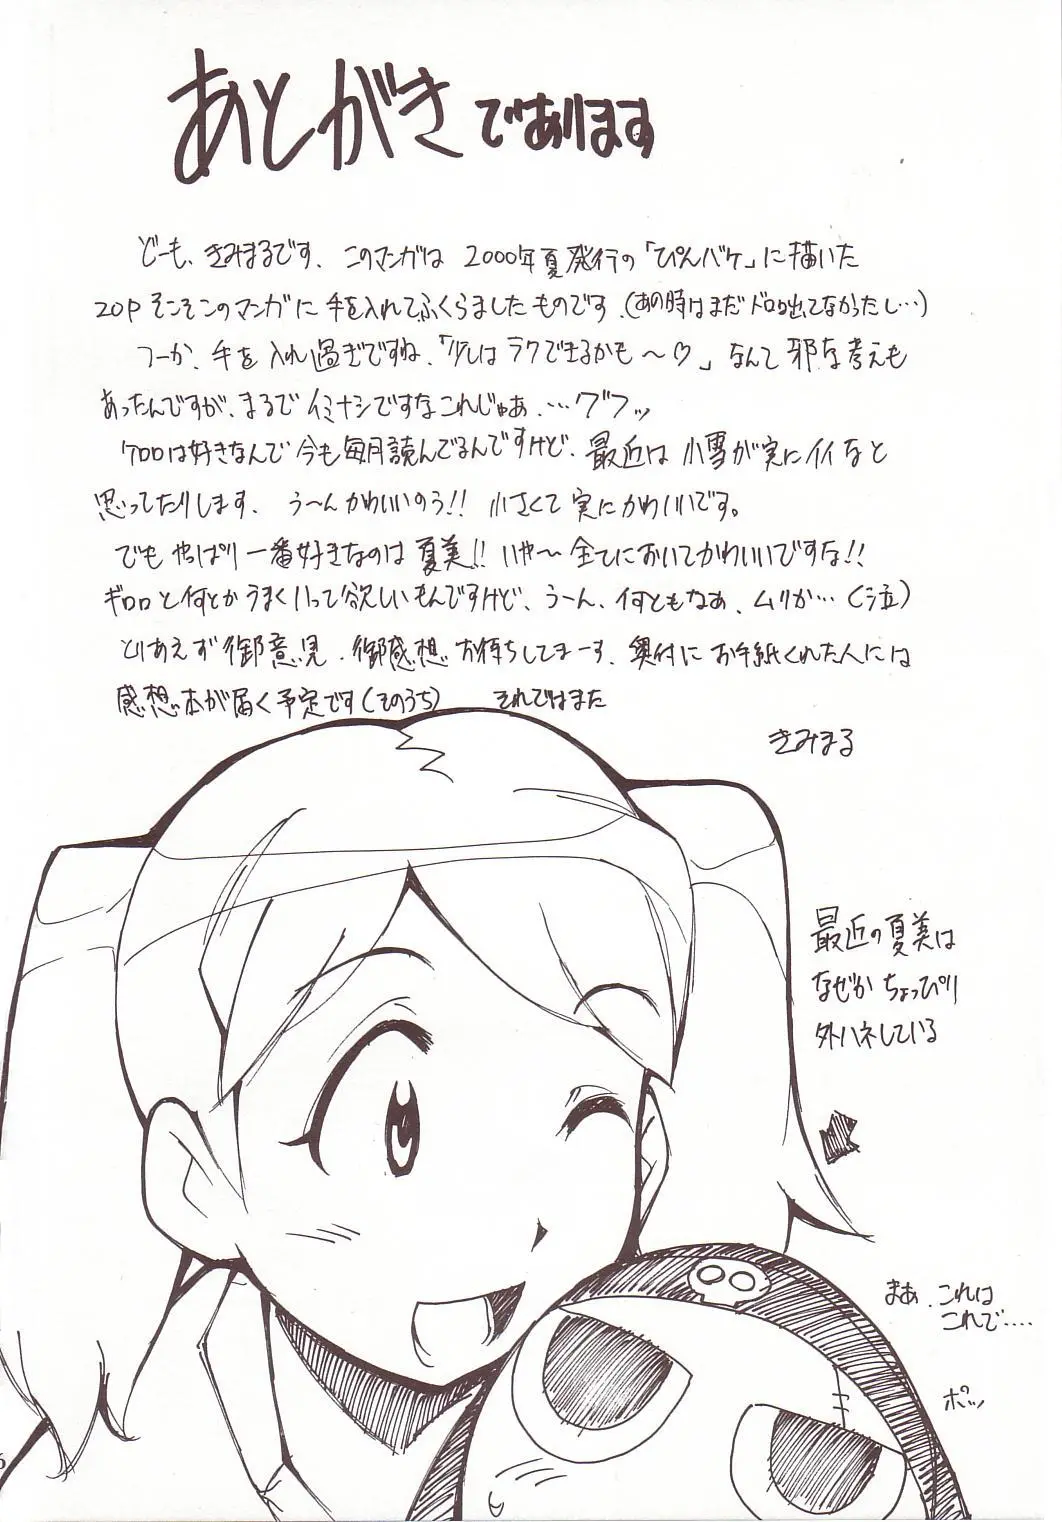 あとがきであります
どーも、きみまるです、このマンガは 2000年夏発行の「ぴんバケ」に描いた
20Pそこそこのマンガに手を入れてふくらましたものです、(あの時はまだドロロ出てなかったし…)
つーか、手を入れ過ぎですね、「少しはラクできるかも～♡」なんて邪な考えも
あったんですが、まるでイミナシですなこれじゃあ、…グフッ
ケロロは好きなんで今も毎月読んでるんですけど、最近は小雪が実にイイなと
思ってたりします、う～んかわいいのう!! 小さくて実にかわいいです。
でもやっぱり一番好きなのは夏美!! いや～全てにおいてかわいいですな!!
ギロロと何とかうまくいって欲しいもんですけど、う～ん、何ともなあ、ムリか…(泣)
とりあえず御意見、御感想お待ちしてまーす、奥付にお手紙くれた人には
感想本が届く予定です(そのうち) それではまた
きみまる
最近の夏美は
なぜかちょっぴり
外ハネしている
まぁ、これは
これで‥‥
ポッ
6